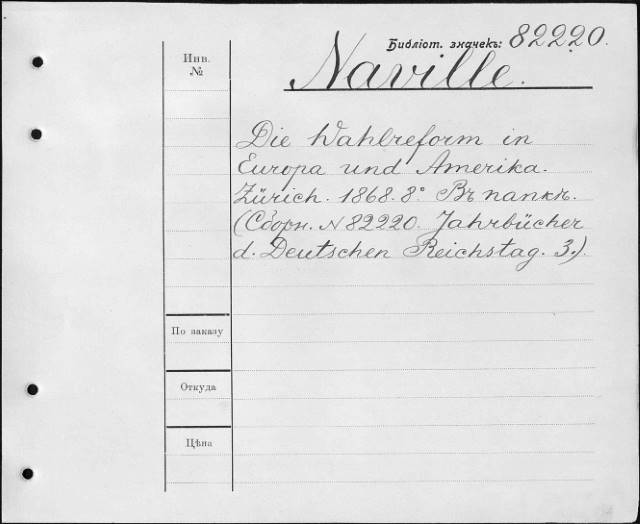 Библіот. значекъ: 82220.
Инв. №
Naville.
Die Wahlreform in
Europa und Amerika.
Zürich. 1868. 8° Въ папкѣ.
(Сборн. N 82220. Jahrbücher
d. Deutschen Reichstag. 3.)
По заказу
Откуда
Цѣна